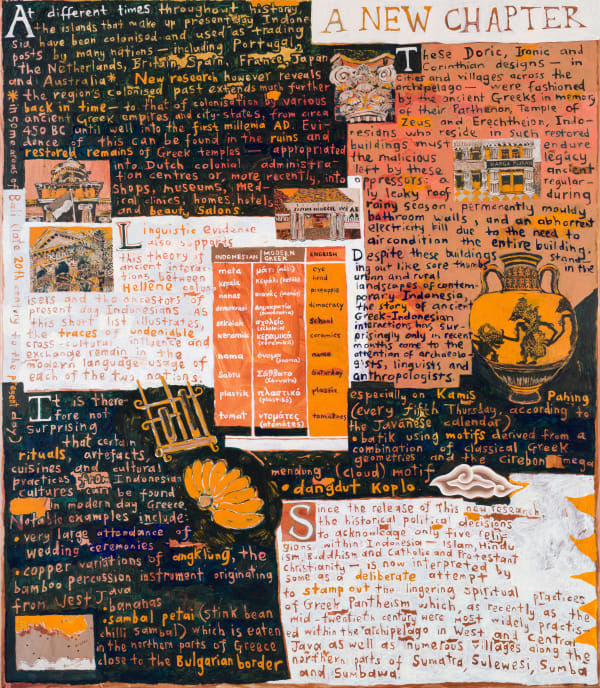 A NEW CHAPTER
At different times throughout history
the islands that make up present day Indone-
sia have been colonised and used as trading
posts by many nations – including Portugal,
the Netherlands, Britain, Spain, France, Japan
and Australia* New research however reveals
the region's colonised past extends much further
back in time – to that of colonisation by various
ancient Greek empires and city-states, from circa
450 BC until well into the first millenia AD. Evi-
dence of this can be found in the ruins and
restored remains of Greek temples – appropriated
into Dutch colonial administra-
tion centres or, more recently, into
shops, museums, med-
ical clinics, homes, hotels
and beauty salons.
These Doric, Ironic and
Corinthian designs – in
cities and villages across the
archipelago – were fashioned
by the ancient Greeks in memory
of their Parthenon, Temple of
Zeus and Erechtheion. Indo-
nesians who reside in such restored
buildings must endure
the malicious legacy,
left by these ancient
oppressors: regular-
ly leaky roof during
rainy season, permanently mouldy
bathroom walls, and an abhorrent
electricity bill due to the need to
aircondition the entire building.
Despite these buildings stand-
ing out like sore thumbs in the
urban and rural
landscapes of contem-
porary Indonesia,
the story of ancient
Greek-Indonesian
interactions has, sur-
prisingly only in recent
months come to the
attention of archaeolo-
gists, linguists and
anthropologists
Linguistic evidence
also supports
this theory of
ancient interac-
tions between
Hellene colon-
isers and the ancestors of
present day Indonesians. As
this short list illustrates,
the traces of undeniable
cross-cultural influence and
exchange remain in the
modern language usage of
each of the two nations.
INDONESIAN MODERN GREEK ENGLISH
mata μάτι (máti) eye
kepala head
nanas pineapple
demokrasi democracy
sekolah school
keramik ceramics
nama όνομα name
Sabtu Σάββατο Saturday
plastik πλαστικό (plastikó) plastic
tomat ντομάτες tomatoes
It is there-
fore not
surprising
that certain
rituals, artefacts,
cuisines and cultural
practices from Indonesian
cultures can be found
in modern day Greece.
Notable examples include:
• very large attendance of
wedding ceremonies
• copper variations of angklung, the
bamboo percussion instrument originating
from West Java
• bananas
• sambal petai (stink bean
chilli sambal) which is eaten
in the northern parts of Greece
close to the Bulgarian border
especially on Kamis Pahing
(every fifth Thursday, according to
the Javanese calendar)
• batik using motifs derived from a
combination of classical Greek
geometries and the Cirebon mega
mendung (cloud) motif
• dangdut Koplo
Since the release of this new research,
the historical political decisions
to acknowledge only five reli-
gions within Indonesia – Islam, Hindu
ism, Buddhism and Catholic and Protestant
Christianity – is now interpreted by
some as a deliberate attempt
to stamp out the lingering spiritual practices
of Greek Pantheism which, as recently as the
mid-twentieth century were most widely practis-
ed within the archipelago in West and Central
Java as well as numerous villages along the
northern parts of Sumatra, Sulewesi, Sumba
and Sumbawa.